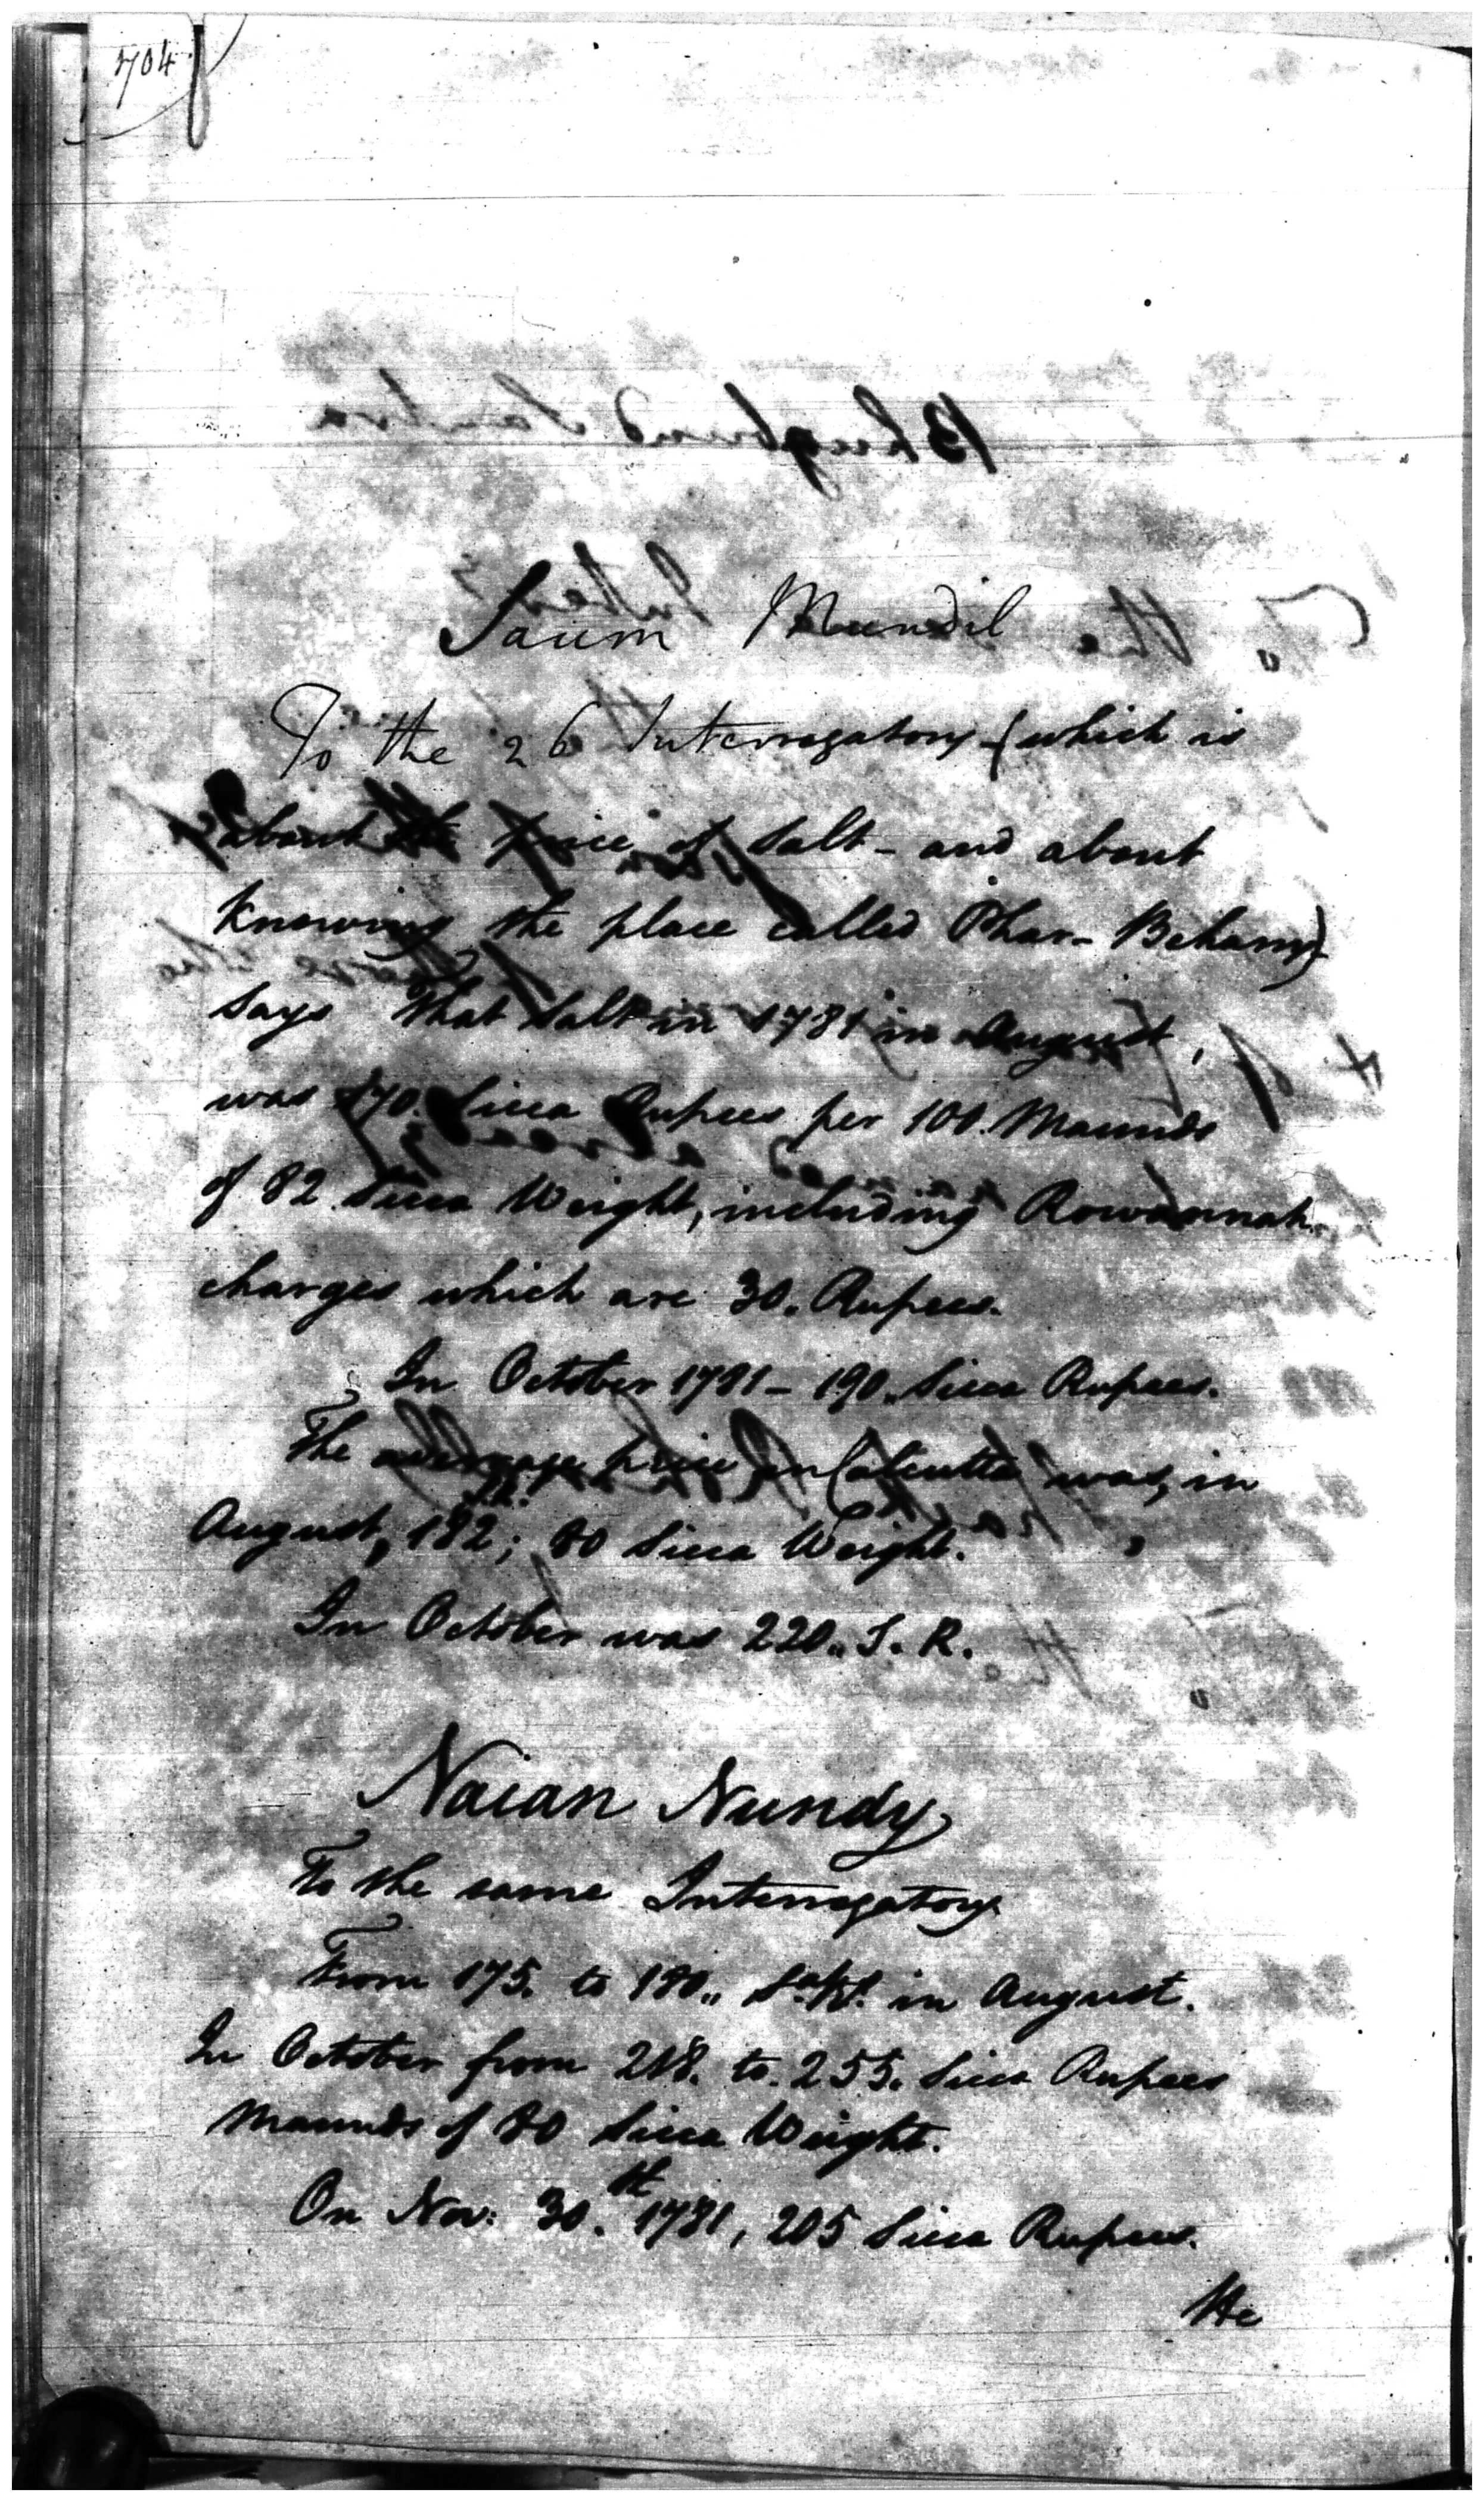 704
Saum Mundil
To the 26 Interrogatory (which is
about the price of Salt - and about
knowing the place called Phar- Behary)
says That Salt in 1781 in August,
was 170. Sicca Rupees per 100. Maunds
of 82 Sicca Weight, including Rowannah
charges which are 30. Rupees.
In October 1781 - 190. Sicca Rupees.
The average price in Calcutta was, in
August, 182; 80 Sicca Weight.
In October was 220.. S. R.
Naian Nundy
To the same Interrogatory
From 175. to 180.. Sa. Rs. in August.
In October from 218. to. 255. Sicca Rupees
Maunds of 80 Sicca Weight.
On Nov: 30.th 1781, 205 Sicca Rupees.
He